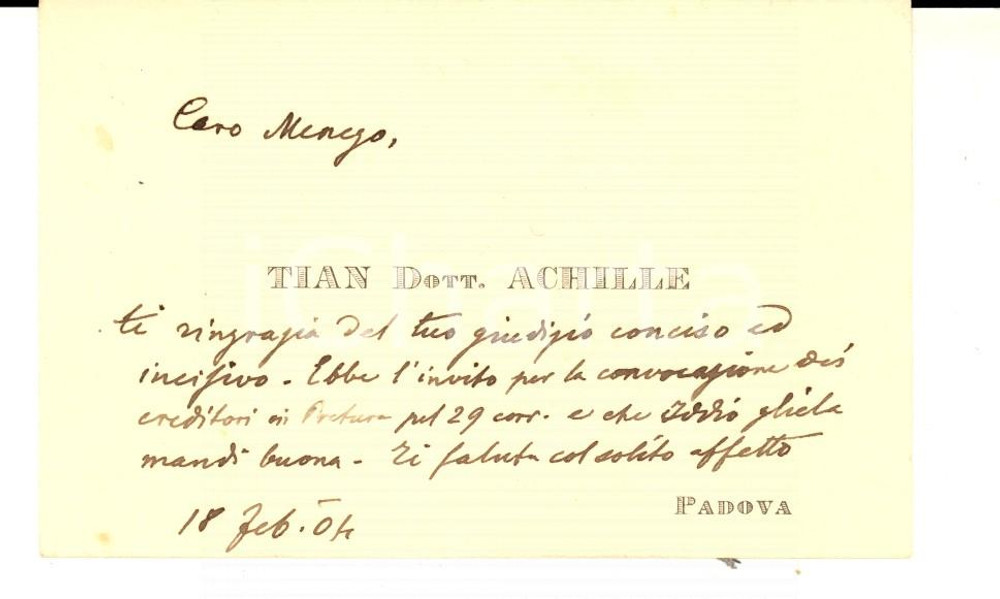 Caro Menego,
TIAN DOTT. ACHILLE
ti ringrazia del tuo giudizio conciso ed
incisivo - Ebbe l'invito per la convocazione dei
creditori in Pretura pel 29 corr. e che Iddio gliela
mandi buona - Ti saluta col solito affetto
PADOVA
18 Feb. 04